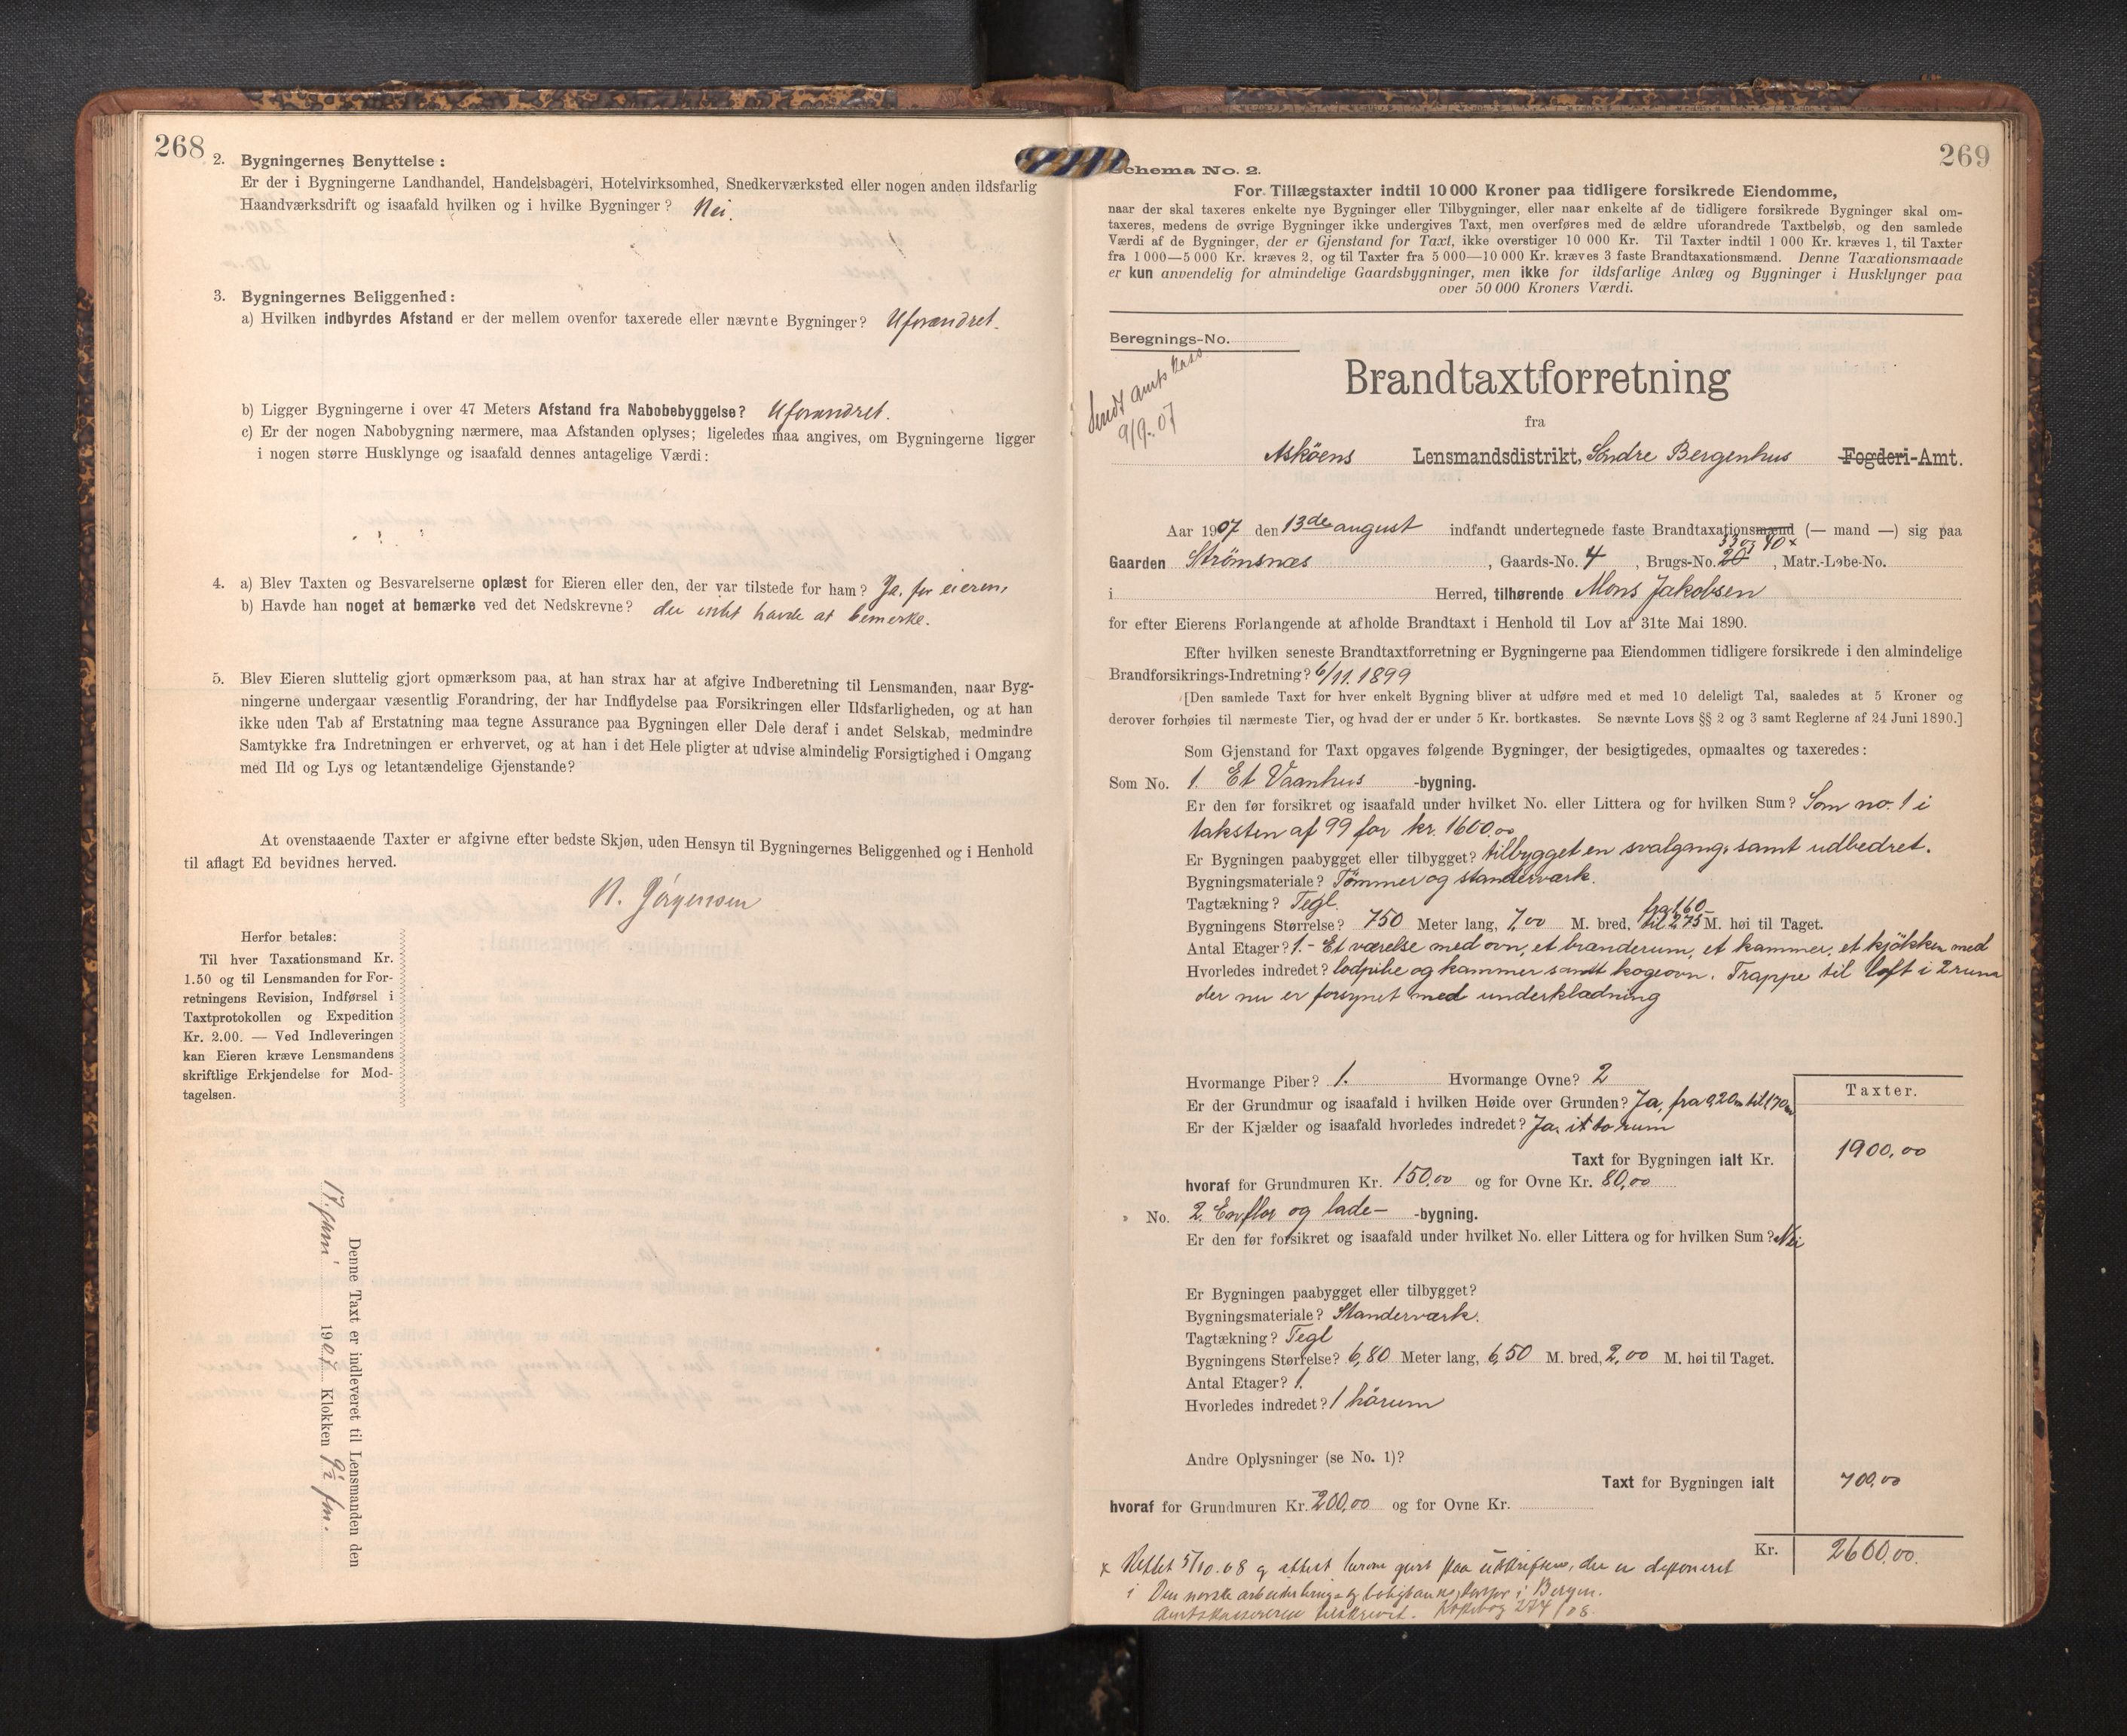 268
2. Bygningernes Benyttelse:
Er der i Bygningerne Landhandel, Handelsbageri, Hotelvirksomhed, Snedkerværksted eller nogen anden ildsfarlig
Haandværksdrift og isaafald hvilken og i hvilke Bygninger? Nei.
3. Bygningernes Beliggenhed:
a) Hvilken indbyrdes Afstand er der mellem ovenfor taxerede eller nævnte Bygninger? Uforandret.
b) Ligger Bygningerne i over 47 Meters Afstand fra Nabobebyggelse? Uforandret.
c) Er der nogen Nabobygning nærmere, maa Afstanden oplyses; ligeledes maa angives, om Bygningerne ligger
i nogen større Husklynge og isaafald dennes antagelige Værdi:
4. a) Blev Taxten og Besvarelserne oplæst for Eieren eller den, der var tilstede for ham? Ja, for eieren,
b) Havde han noget at bemærke ved det Nedskrevne? der intet havde at bemerke.
5. Blev Eieren sluttelig gjort opmærksom paa, at han strax har at afgive Indberetning til Lensmanden, naar Byg-
ningerne undergaar væsentlig Forandring, der har Indflydelse paa Forsikringen eller Ildsfarligheden, og at han
ikke uden Tab af Erstatning maa tegne Assurance paa Bygningen eller Dele deraf i andet Selskab, medmindre
Samtykke fra Indretningen er erhvervet, og at han i det Hele pligter at udvise almindelig Forsigtighed i Omgang
med Ild og Lys og letantændelige Gjenstande?
At ovenstaaende Taxter er afgivne efter bedste Skjøn, uden Hensyn til Bygningernes Beliggenhed og i Henhold
til aflagt Ed bevidnes herved.
N. Jörgensen
Herfor betales:
Til hver Taxationsmand Kr.
1.50 og til Lensmanden for For-
retningens Revision, Indførsel i
Taxtprotokollen og Expedition
Kr. 2.00. — Ved Indleveringen
kan Eieren kræve Lensmandens
skriftlige Erkjendelse for Mod-
tagelsen.
Denne Taxt er indleveret til Lensmanden den
17. juni 1907 Klokken 9½ fm.
269
Schema No. 2.
For Tillægstaxter indtil 10 000 Kroner paa tidligere forsikrede Eiendomme,
naar der skal taxeres enkelte nye Bygninger eller Tilbygninger, eller naar enkelte af de tidligere forsikrede Bygninger skal om-
taxeres, medens de øvrige Bygninger ikke undergives Taxt, men overføres med de ældre uforandrede Taxtbeløb, og den samlede
Værdi af de Bygninger, der er Gjenstand for Taxt, ikke overstiger 10 000 Kr. Til Taxter indtil 1 000 Kr. kræves 1, til Taxter
fra 1 000—5 000 Kr. kræves 2, og til Taxter fra 5 000—10 000 Kr. kræves 3 faste Brandtaxationsmænd. Denne Taxationsmaade
er kun anvendelig for almindelige Gaardsbygninger, men ikke for ildsfarlige Anlæg og Bygninger i Husklynger paa
over 50 000 Kroners Værdi.
Beregnings-No.
Sendt amtskass
9/9.07
Brandtaxtforretning
fra
Asköens Lensmandsdistrikt, Söndre Bergenhus Fogderi-Amt.
Aar 1907 den 13de august indfandt undertegnede faste Brandtaxationsmænd (— mand —) sig paa
33 og 40 x
Gaarden Strömsnæs, Gaards-No. 4, Brugs-No. 20, Matr.-Løbe-No.
i Herred, tilhørende Mons Jakobsen
for efter Eierens Forlangende at afholde Brandtaxt i Henhold til Lov af 31te Mai 1890.
Efter hvilken seneste Brandtaxtforretning er Bygningerne paa Eiendommen tidligere forsikrede i den almindelige
Brandforsikrings-Indretning? 6/11. 1899
[Den samlede Taxt for hver enkelt Bygning bliver at udføre med et med 10 deleligt Tal, saaledes at 5 Kroner og
derover forhøies til nærmeste Tier, og hvad der er under 5 Kr. bortkastes. Se nævnte Lovs §§ 2 og 3 samt Reglerne af 24 Juni 1890.]
Som Gjenstand for Taxt opgaves følgende Bygninger, der besigtigedes, opmaaltes og taxeredes:
Som No. 1. Et Vaanhus -bygning.
Er den før forsikret og isaafald under hvilket No. eller Littera og for hvilken Sum? Som no. 1 i
taksten af 99 for kr. 1600.00
Er Bygningen paabygget eller tilbygget? tilbygget en svalgang, samt udbedret.
Bygningsmateriale? Tömmer og standerværk.
Tagtækning? Tegl.
fra 1.60
Bygningens Størrelse? 750 Meter lang, 7,00 M. bred, til 275 M. høi til Taget.
Antal Etager? 1. - Et værelse med ovn, et branderum, et kammer, et kjökken med
Hvorledes indredet? lodpibe og kammer samt kogeovn. Trappe til loft i 2 rum
der nu er forsynet med underklædning
Hvormange Piber? 1. Hvormange Ovne? 2
Er der Grundmur og isaafald i hvilken Høide over Grunden? Ja, fra 0,20m til 1,70m
Er der Kjælder og isaafald hvorledes indredet? Ja, it to rum
Taxter.
Taxt for Bygningen ialt Kr. 1900,00
hvoraf for Grundmuren Kr. 150,00 og for Ovne Kr. 80,00
No. 2. En flor og lade- -bygning.
Er den før forsikret og isaafald under hvilket No. eller Littera og for hvilken Sum? Nei
Er Bygningen paabygget eller tilbygget?
Bygningsmateriale? Standerværk.
Tagtækning? Tegl
Bygningens Størrelse? 6,80 Meter lang, 6,50 M. bred, 2,00 M. høi til Taget.
Antal Etager? 1.
Hvorledes indredet? 1 hórum
Andre Oplysninger (se No. 1)?
Taxt for Bygningen ialt 700,00
hvoraf for Grundmuren Kr. 200,00 og for Ovne Kr.
Kr. 2600,00.
x Rettet 5/10.08 og attest herom gjort paa udskriften, der er deponeret
i Den norske arbeiderbrugs og boligbank i Bergen.
Amtskassereren tilskrevet. Kopibog 274/08.